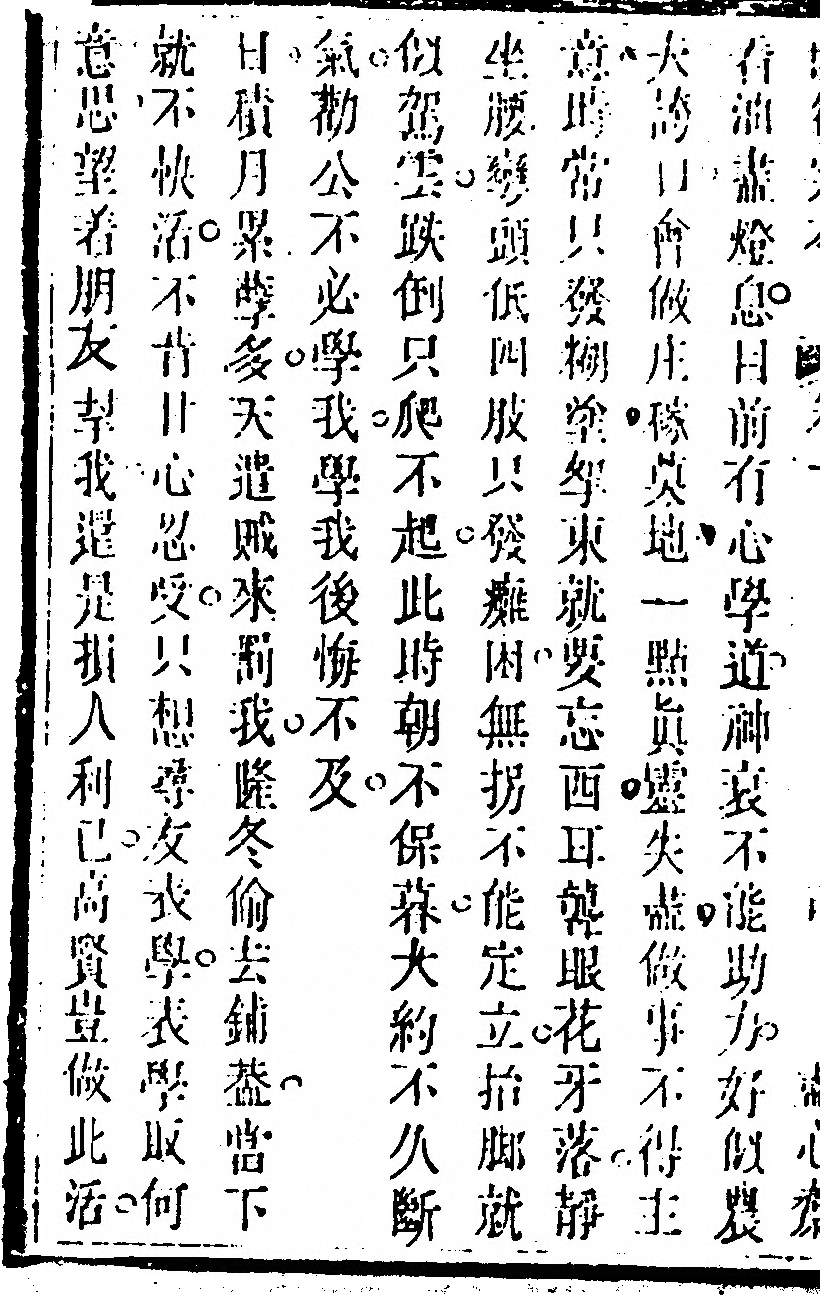 看油盡燈息目前有心學道神衰不能助力好似農
夫誇口會做庄稼莫地一點真靈失盡做事不得主
意時常只發糊塗拏東就要忘西耳聾眼花牙落靜
坐腰彎頭低四肢只發癱困無拐不能定立抬脚就
似駕雲跌倒只爬不起此時朝不保暮大約不久斷
氣勸公不必學我學我後悔不及
日積月累孽多天遣賊來罰我隆冬偷去鋪葢當下
就不快活不肯甘心忍受只想尋友丧學丧學取何
意思望着朋友幇我還是損人利己高賢豈做此活